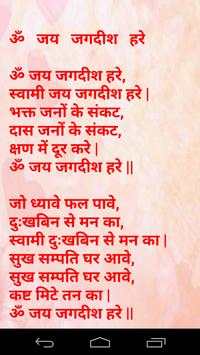 ॐ जय जगदीश हरे
ॐ जय जगदीश हरे,
स्वामी जय जगदीश हरे |
भक्त जनों के संकट,
दास जनों के संकट,
क्षण में दूर करे |
ॐ जय जगदीश हरे ||
जो ध्यावे फल पावे,
दुःखबिन से मन का,
स्वामी दुःखबिन से मन का |
सुख सम्पति घर आवे,
सुख सम्पति घर आवे,
कष्ट मिटे तन का |
ॐ जय जगदीश हरे ||